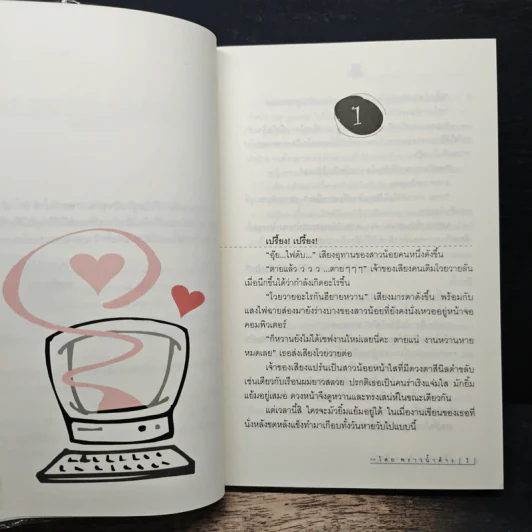 1
เปรี้ยง! เปรี้ยง!
"อุ๊ย...ไฟดับ..." เสียงอุทานของสาวน้อยคนหนึ่งดังขึ้น
"ตายแล้ว ว ว ว ...ตายๆๆๆ" เจ้าของเสียงคนเดิมโวยวายลั่น
เมื่อนึกขึ้นได้ว่ากำลังเกิดอะไรขึ้น
"โวยวายอะไรกันฮึยายหวาน" เสียงมารดาดังขึ้น พร้อมกับ
แสงไฟฉายส่องมายังร่างบางของสาวน้อยที่ยังคงนั่งเหวออยู่หน้าจอ
คอมพิวเตอร์
"ก็หวานยังไม่ได้เซฟงานใหม่เลยนี่คะ ตายแน่ งานหวานหาย
หมดเลย" เธอส่งเสียงโวยวายต่อ
เจ้าของเสียงแปร๋นเป็นสาวน้อยหน้าใสที่มีดวงตาสีนิลดำขลับ
เช่นเดียวกับเรือนผมยาวสลวย ปรกติเธอเป็นคนร่าเริงแจ่มใส มักยิ้ม
แย้มอยู่เสมอ ดวงหน้าจึงดูหวานและทรงเสน่ห์ในขณะเดียวกัน
แต่เวลานี้สิ ใครจะมัวยิ้มแย้มอยู่ได้ ในเมื่องานเขียนของเธอที่
นั่งหลังขดหลังแข็งทำมาเกือบทั้งวันหายวับไปแบบนี้